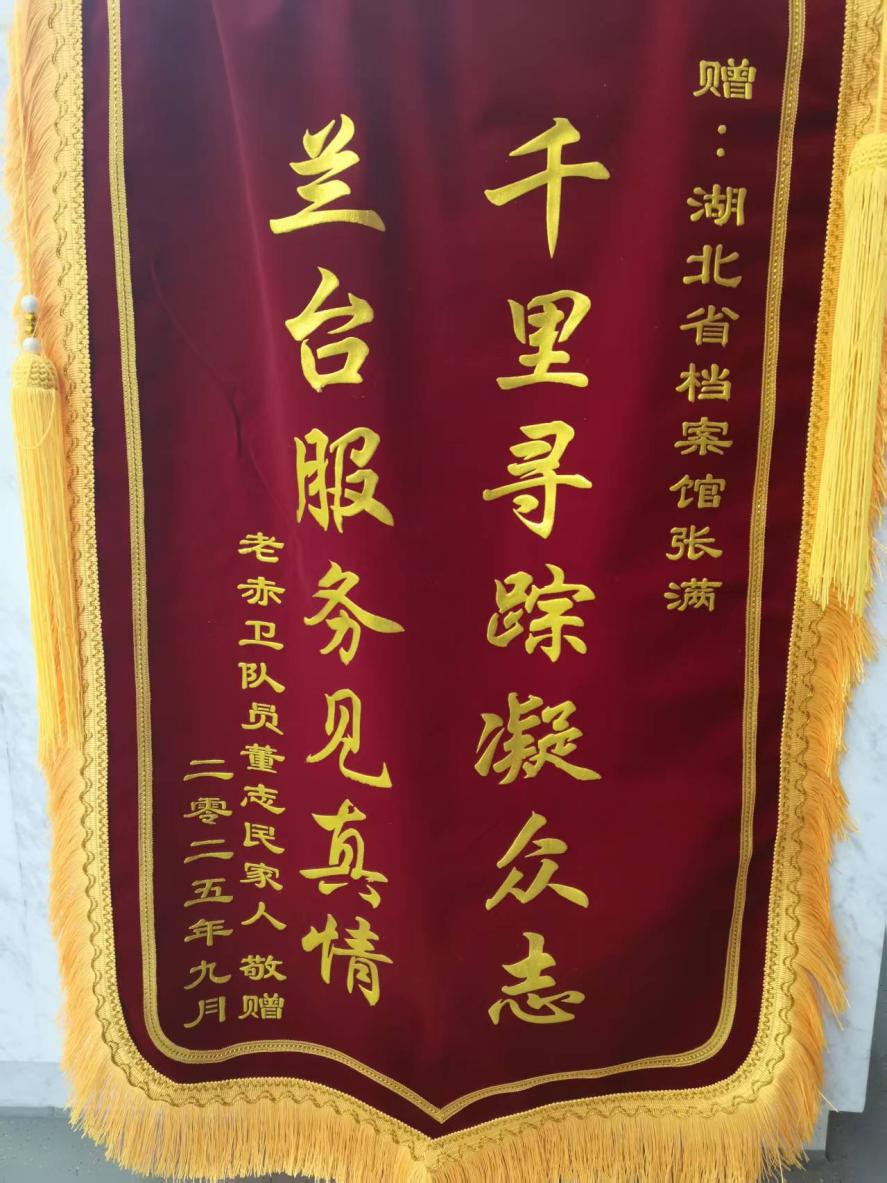 赠：湖北省档案馆张满
千里寻踪凝众志
兰台服务见真情
老赤卫队员董志民家人 敬赠
二零二五年九月